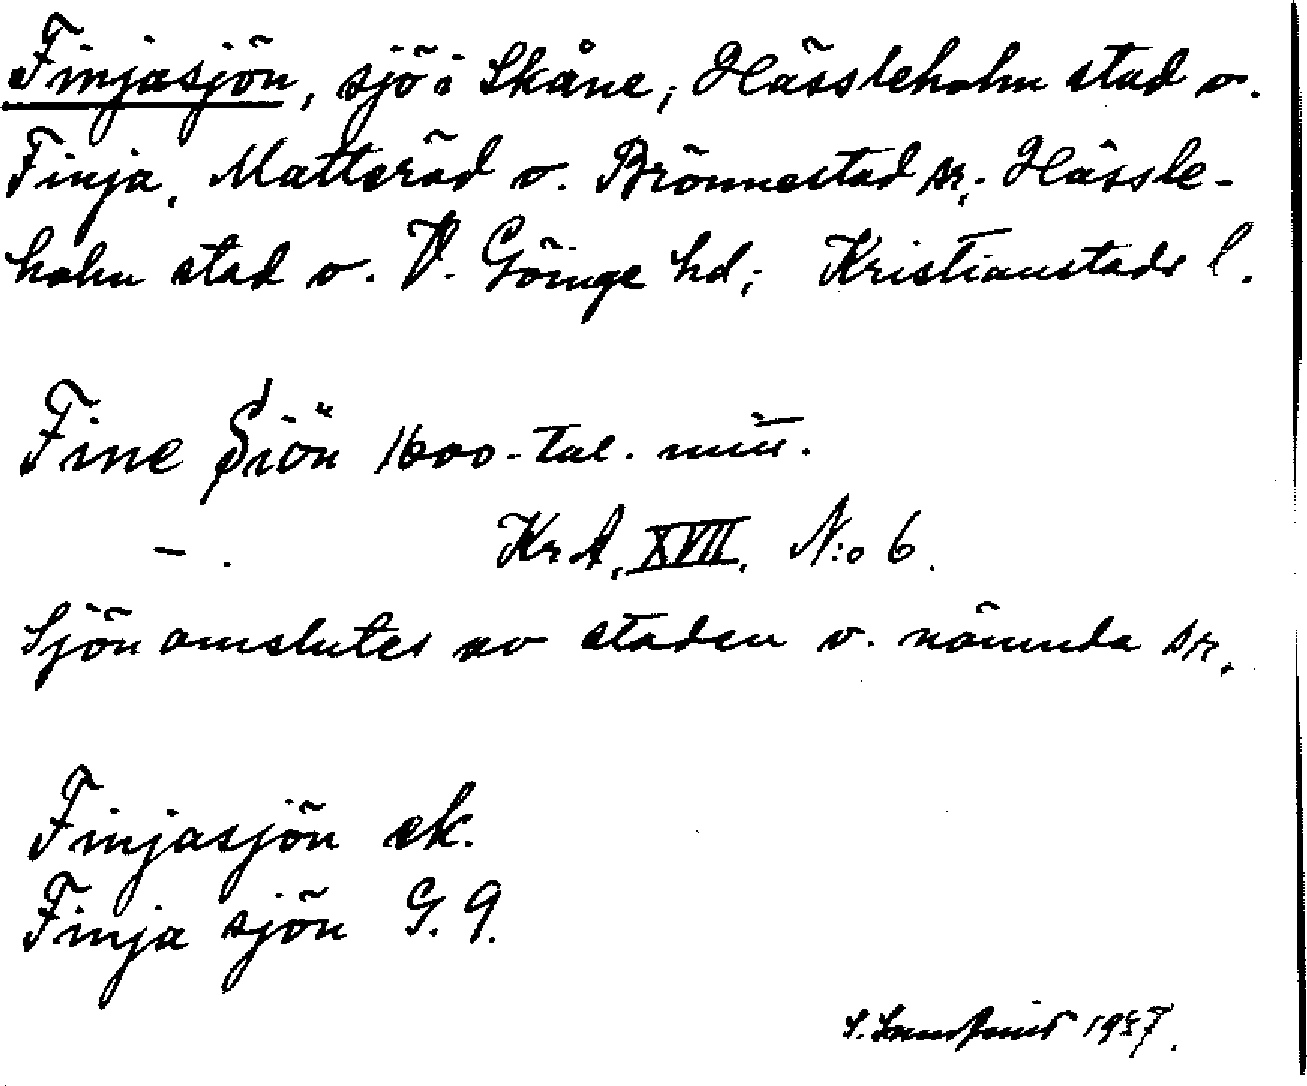 Finjasjön, sjö i Skåne, Hässleholm stad o.
Finja, Matteröd o. Brönnestad sr, Hässle-
holm stad o. V. Göinge hd; Kristianstads l.
Fine Siön 1600-tal. mitt.
- . KrA, XVII, N:o 6.
Sjön omslutes av staden o. nämnda sr.
Finjasjön ek.
Finja sjön G. 9.
1957.